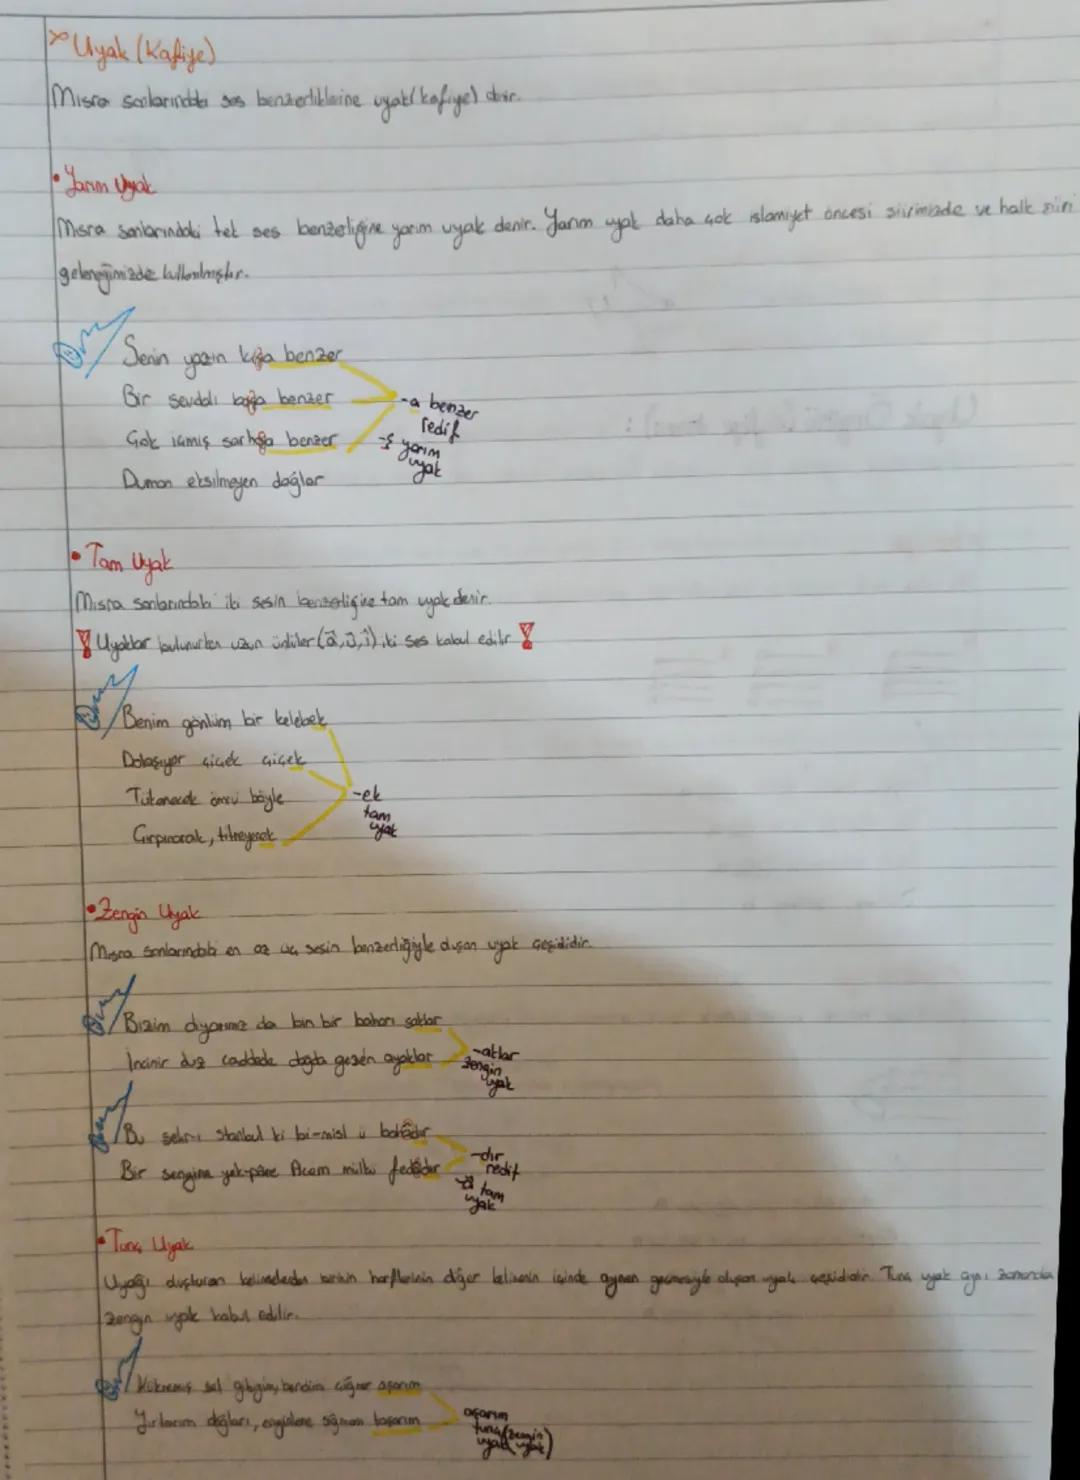 Uyak (Kafiye)
Mısra sonlarındaki ses benzerliklerine uyak (kafiye) denir.
• Yarım Uyak
Mısra sonlarındaki tek ses benzerliğine yarım uyak denir. Yarım uyak daha çok islamiyet öncesi şiirimizde ve halk şiiri
geleneğimizde kullanılmıştır.
Senin yazın kışa benzer
Bir sevdalı başa benzer
Çok içmiş sarhoşa benzer
Duman eksilmeyen dağlar
-a benzer
redif
-ş yarım
uyak
• Tam Uyak
Mısra sonlarındaki iki sesin benzerliğine tam uyak denir.
Uyaklar bulunurken uzun ünlüler (â, û, î) iki ses kabul edilir
Benim gönlüm bir kelebek
Dolaşıyor çiçek çiçek
Tükenecek ömrü böyle
Çırpınarak, titreyerek
-ek
tam
uyak
• Zengin Uyak
Mısra sonlarındaki en az üç sesin benzerliğiyle oluşan uyak çeşididir.
Bizim diyarımız da bin bir baharı saklar
İncinir düz caddede dağda gezen ayaklar
-aklar
zengin
uyak
Bu şehr-i Stanbul ki bi-misl ü bahâdır
Bir sengine yek-pâre Acem mülkü fedâdır
-dır
redif
-â tam
uyak
• Tunç Uyak
Uyağı oluşturan kelimelerden birinin harflerinin diğer kelimenin içinde aynen geçmesiyle oluşan uyak çeşididir. Tunç uyak aynı zamanda
zengin uyak kabul edilir.
Kükremiş sel gibiyim, bendimi çiğner aşarım
Yırtarım dağları, enginlere sığmam taşarım
aşarım
tunç
uyak (zengin
uyak)